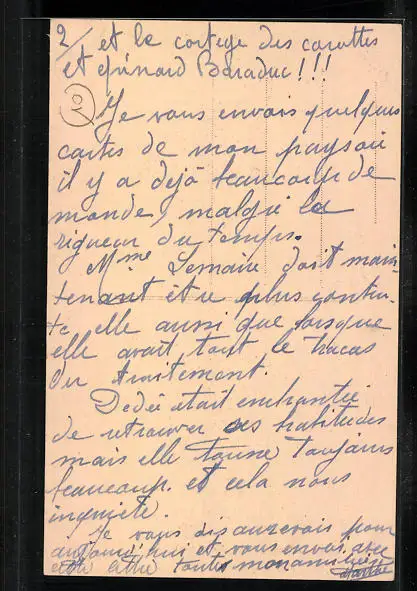 2/ et le cortège des carottes
et épinard Baraduc!!!
10
Je vous envois quelques
cartes de mon pays où
il y a déjà beaucoup de
monde, malgré la
rigueur du temps.
Mme Lemaire doit main-
tenant être plus conten-
te elle aussi que lorsque
elle avait tout le tracas
du traitement.
Dédée était enchantée
de retrouver ses habitudes
mais elle tousse toujours
beaucoup et cela nous
inquiète.
Je vous dis aurevoir pour
aujourd'hui et vous envoi avec
cette lettre toute mon amitié